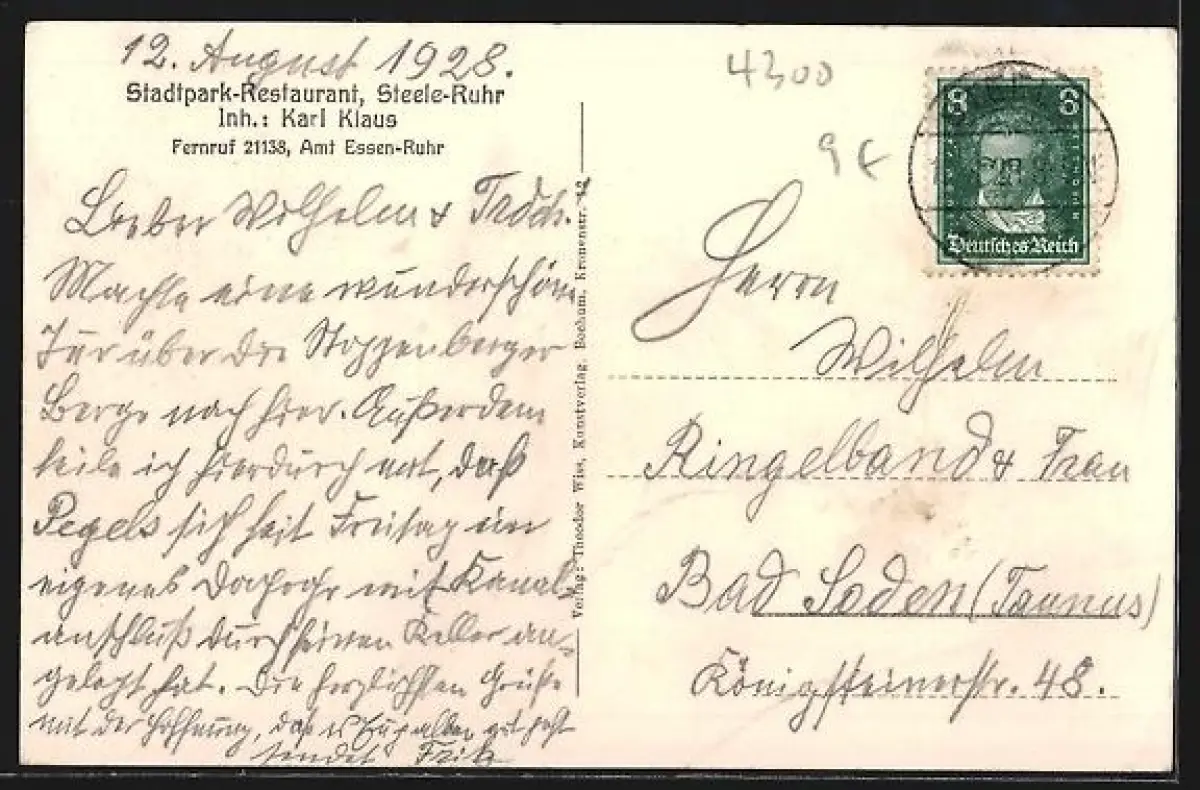 12. August 1928.
Stadtpark-Restaurant, Steele-Ruhr
Inh.: Karl Klaus
Fernruf 21138, Amt Essen-Ruhr
Lieber Wilhelm &
Machte eine wunderschöne
Tur über die Stoppenberger
Berge nach hier. Außerdem
teile ich hierdurch mit, daß
Pegels sich seit Freitag ein
eigenes mit Kanal-
anschluß durch seinen Keller an-
gelegt hat. Die herzlichsten Grüße
mit der Hoffnung, daß es Euch allen gut geht
sendet Fritz
Verlag: Theodor Wiss, Kunstverlag, Bochum, Kronenstr.
4300
9 €
8 8
Deutsches Reich
Herrn
Wilhelm
Ringelband & Frau
Bad Soden (Taunus)
Königsteinerstr. 48.